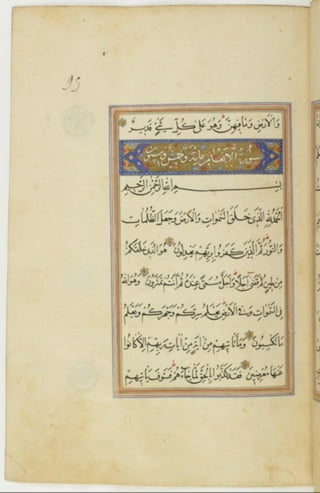 وَالْاَرْضِ وَمَا فِيهِنَّ وَهُوَ عَلٰى كُلِّ شَيْءٍ قَدِيرٌ
سورة الانعام مائة وخمس وستون
بِسْمِ اللّٰهِ الرَّحْمٰنِ الرَّحِيمِ
اَلْحَمْدُ لِلّٰهِ الَّذِي خَلَقَ السَّمٰوَاتِ وَالْاَرْضَ وَجَعَلَ الظُّلُمَاتِ
وَالنُّورَ ثُمَّ الَّذِينَ كَفَرُوا بِرَبِّهِمْ يَعْدِلُونَ هُوَ الَّذِي خَلَقَكُمْ
مِنْ طِينٍ ثُمَّ قَضٰى اَجَلًا وَاَجَلٌ مُسَمًّى عِنْدَهُ ثُمَّ اَنْتُمْ تَمْتَرُونَ وَهُوَ اللّٰهُ
فِي السَّمٰوَاتِ وَفِي الْاَرْضِ يَعْلَمُ سِرَّكُمْ وَجَهْرَكُمْ وَيَعْلَمُ
مَا تَكْسِبُونَ وَمَا تَأْتِيهِمْ مِنْ اٰيَةٍ مِنْ اٰيَاتِ رَبِّهِمْ اِلَّا كَانُوا
عَنْهَا مُعْرِضِينَ فَقَدْ كَذَّبُوا بِالْحَقِّ لَمَّا جَاءَهُمْ فَسَوْفَ يَأْتِيهِمْ